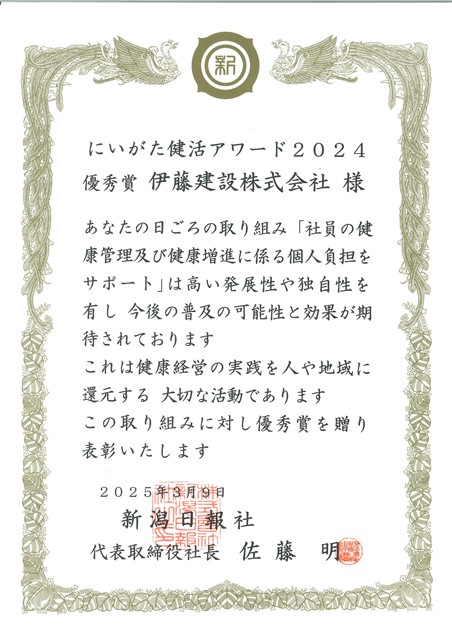 新
にいがた健活アワード２０２４
優秀賞 伊藤建設株式会社 様
あなたの日ごろの取り組み「社員の健
康管理及び健康増進に係る個人負担を
サポート」は高い発展性や独自性を
有し 今後の普及の可能性と効果が期
待されております
これは健康経営の実践を人や地域に
還元する 大切な活動であります
この取り組みに対し優秀賞を贈り
表彰いたします
２０２５年３月９日
新潟日報社
代表取締役社長 佐藤 明